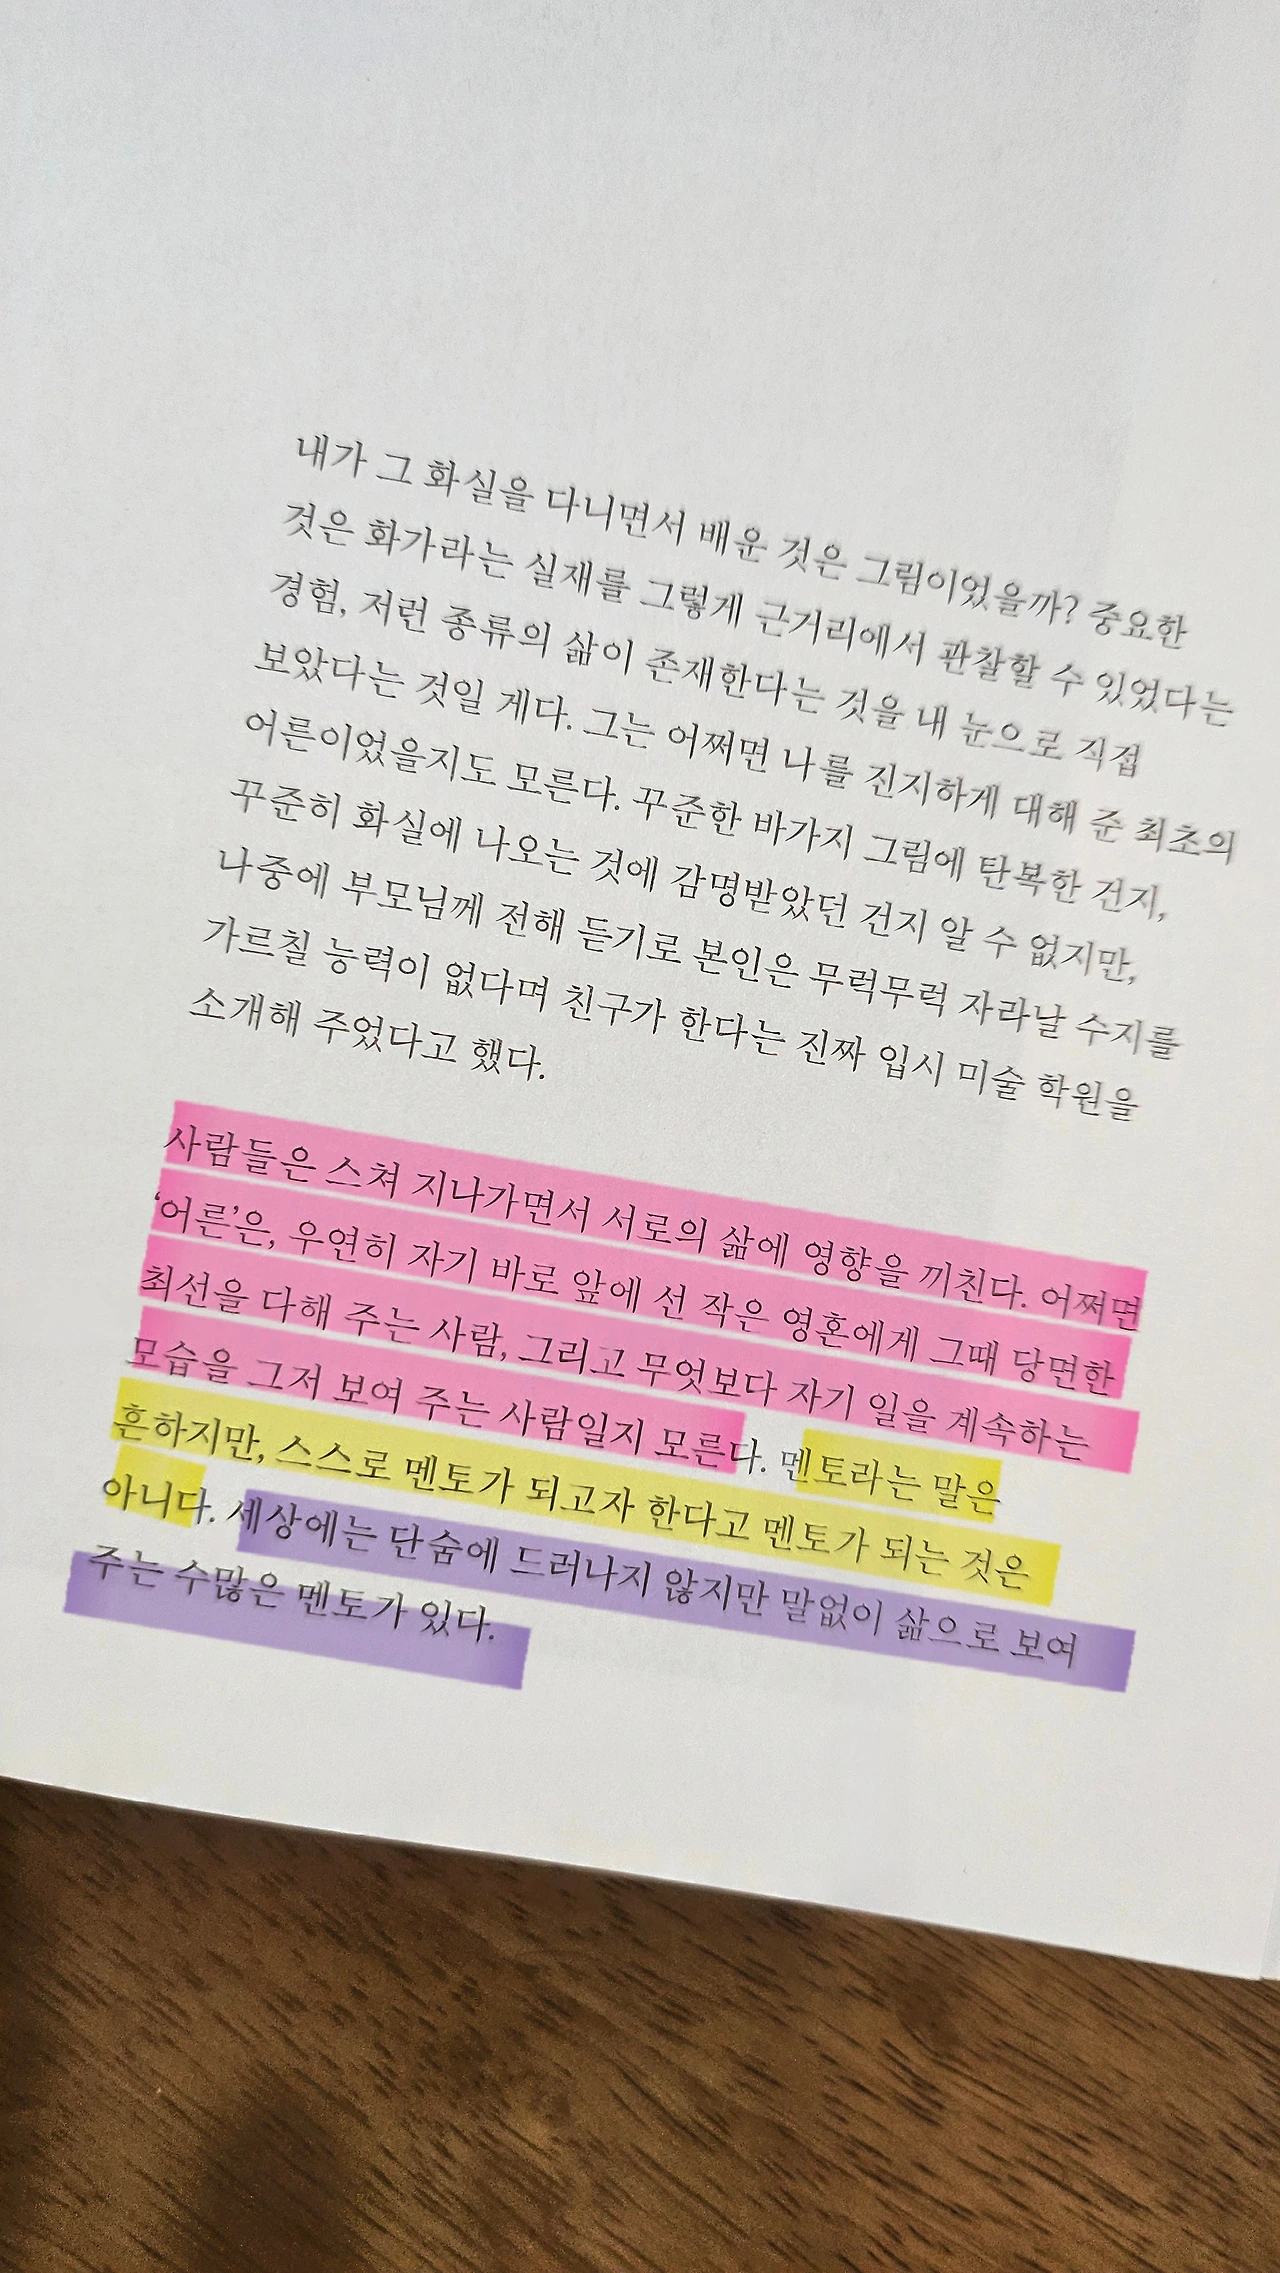 내가 그 화실을 다니면서 배운 것은 그림이었을까? 중요한
것은 화가라는 실재를 그렇게 근거리에서 관찰할 수 있었다는
경험, 저런 종류의 삶이 존재한다는 것을 내 눈으로 직접
보았다는 것일 게다. 그는 어쩌면 나를 진지하게 대해 준 최초의
어른이었을지도 모른다. 꾸준한 바가지 그림에 탄복한 건지,
꾸준히 화실에 나오는 것에 감명받았던 건지 알 수 없지만,
나중에 부모님께 전해 듣기로 본인은 무럭무럭 자라날 수지를
가르칠 능력이 없다며 친구가 한다는 진짜 입시 미술 학원을
소개해 주었다고 했다.
사람들은 스쳐 지나가면서 서로의 삶에 영향을 끼친다. 어쩌면
‘어른’은, 우연히 자기 바로 앞에 선 작은 영혼에게 그때 당면한
최선을 다해 주는 사람, 그리고 무엇보다 자기 일을 계속하는
모습을 그저 보여 주는 사람일지 모른다. 멘토라는 말은
흔하지만, 스스로 멘토가 되고자 한다고 멘토가 되는 것은
아니다. 세상에는 단숨에 드러나지 않지만 말없이 삶으로 보여
주는 수많은 멘토가 있다.